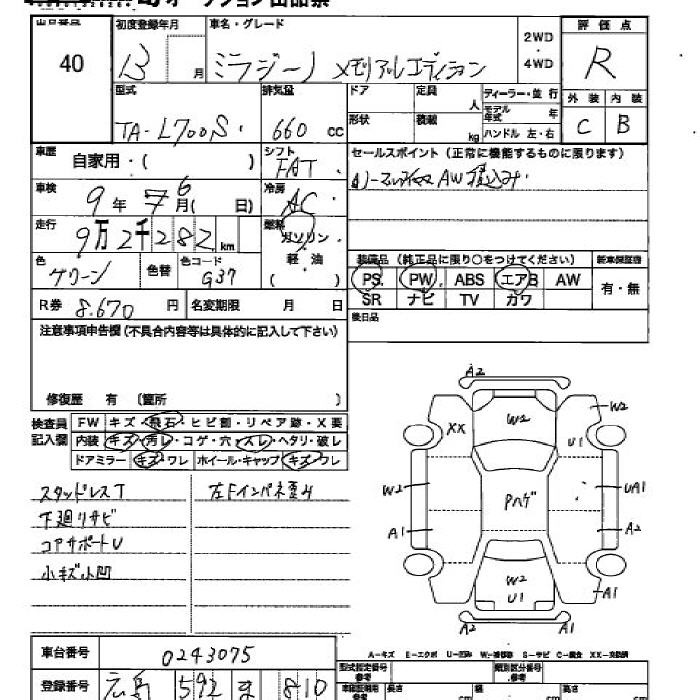 オークション出品票
出品番号 40
初度登録年月 13 月
車名・グレード ミラジーノ メモリアルエディション
2WD・4WD
評価点 R
型式 TA-L700S
排気量 660 cc
ドア 形状
定員 人 積載 kg
ディーラー・並行
モデル年式 年
ハンドル 左・右
外装 C 内装 B
車歴 自家用・( )
シフト FAT
セールスポイント (正常に機能するものに限ります)
車検 9年 7 6 月( 日)
冷房 AC
走行 9万2千282 km
燃料 ガソリン・軽油 ( )
色 グリーン 色替 色コード G37
装備品 (純正品に限り○をつけてください) 新車保証書
PS PW ABS エアB AW 有・無
SR ナビ TV カワ
R券 8.670 円 名変期限 月 日
後日品
注意事項申告欄 (不具合内容等は具体的に記入して下さい)
修復歴 有 〔箇所 〕
検査員記入欄
FW キズ・飛石・ヒビ割・リペア跡・X要
内装 キズ・汚レ・コゲ・穴・スレ・ヘタリ・破レ
ドアミラー キズ・ワレ ホイール・キャップ キズ・ワレ
スタッドレスT 左Fインパネ歪み
下廻りサビ
コアサポートU
小キズ小凹
A2
W2 W2
XX U1
W2 Pハゲ UA1
A1 A2
W2 U1 A1
A2 A1
A-キズ E-エクボ U-凹み W-補修跡 S-サビ C-腐食 XX-交換済
車台番号 0243075
型式指定番号 参考 類別区分番号 参考
登録番号 広島 592 ま 810
車庫証明用 参考 長さ cm 幅 cm 高さ cm